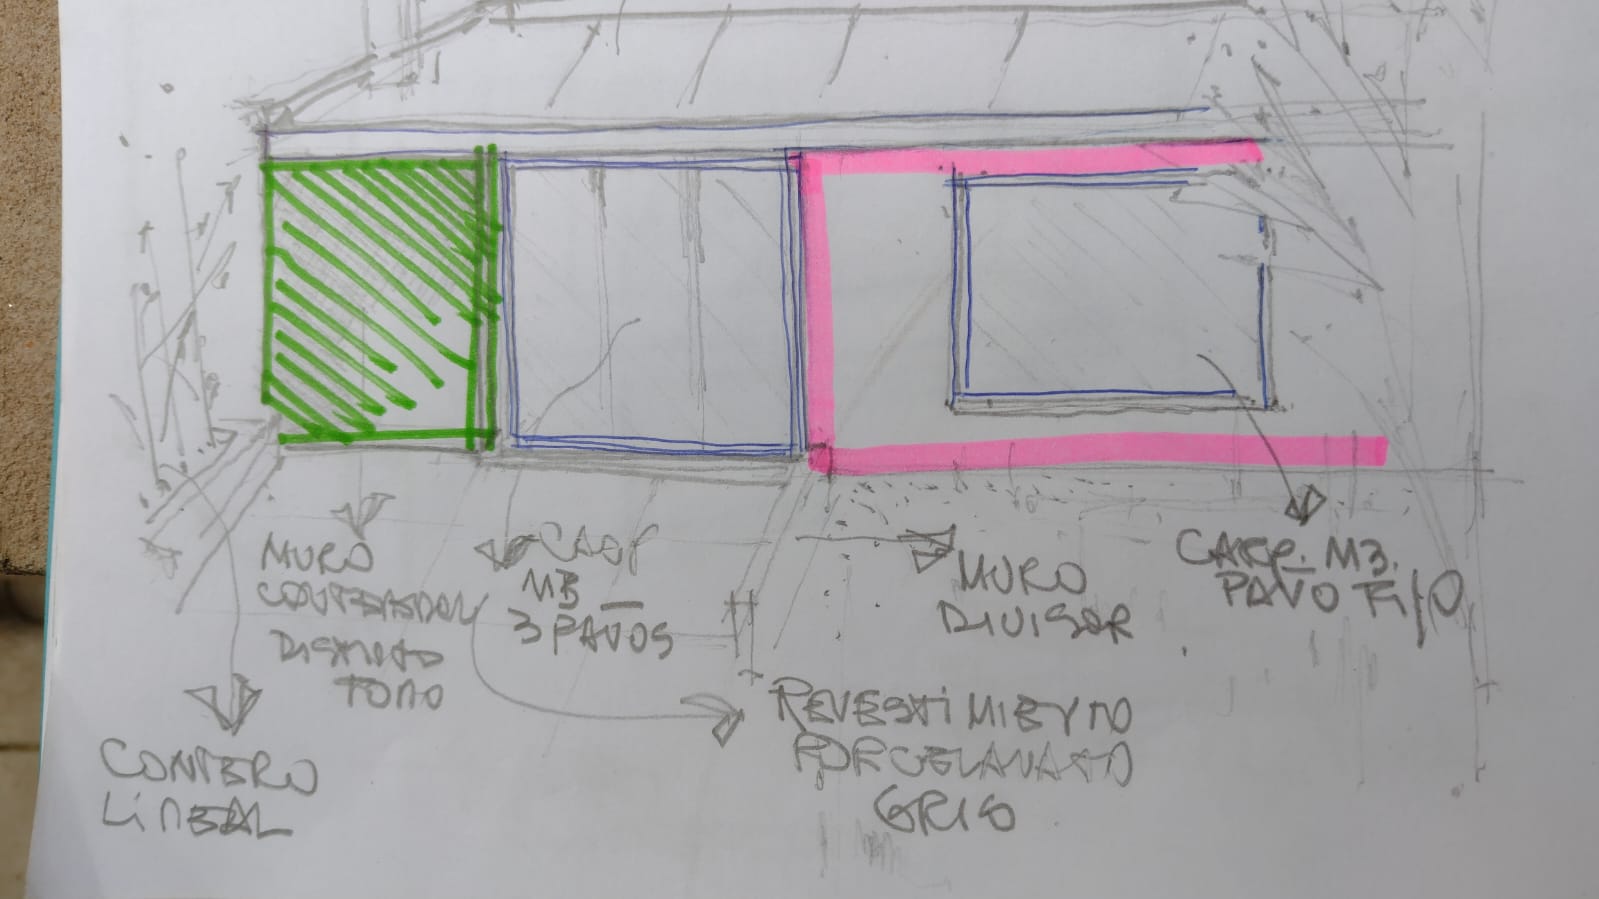 MURO
DISTINTO
TONO
CARP
M3
3 PAÑOS
MURO
DIVISOR
CARP. M3.
PAÑO FIJO
CANTERO
LINEAL
REVESTIMIENTO
PORCELANATO
GRIS